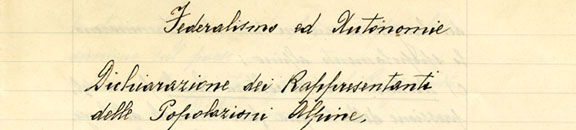 Federalismo ed Autonomie
Dichiarazione dei Rappresentanti
delle Popolazioni Alpine.